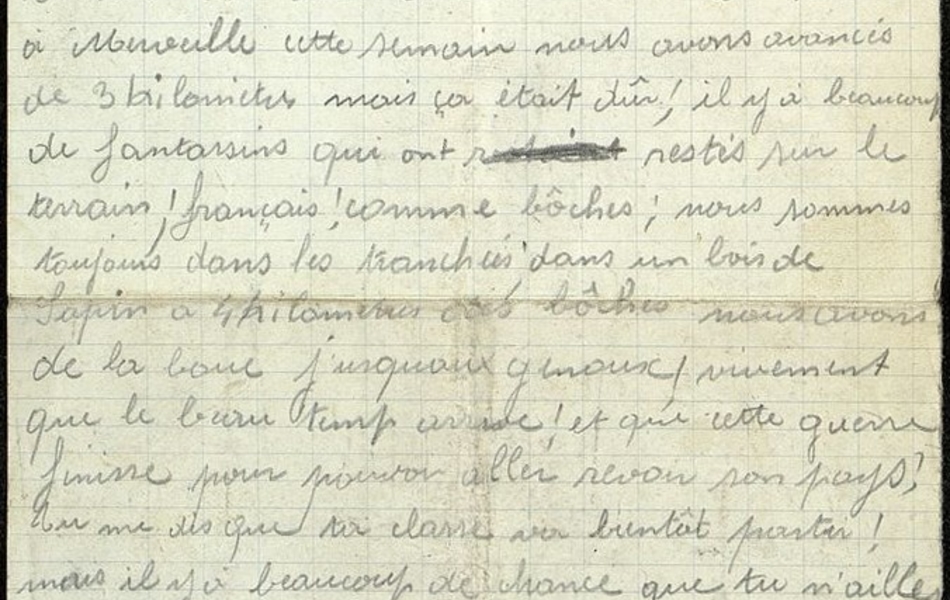 à Merveille cette semain nous avons avancés
de 3 kilometres mais ça était dûr! il y à beaucoup
de fantassins qui ont restés sur le
terrain! français! comme bôches; nous sommes
toujours dans les tranchées dans un bois de
Sapin a 4 kilometres des bôches nous avons
de la boue jusquaux genoux! vivement
que le beau temp arrive! et que cette guerre
finisse pour pouvoir aller revoir son pays!
Tu me dis que ta classe va bientôt partir!
mais il y à beaucoup de chance que tu n'ailles